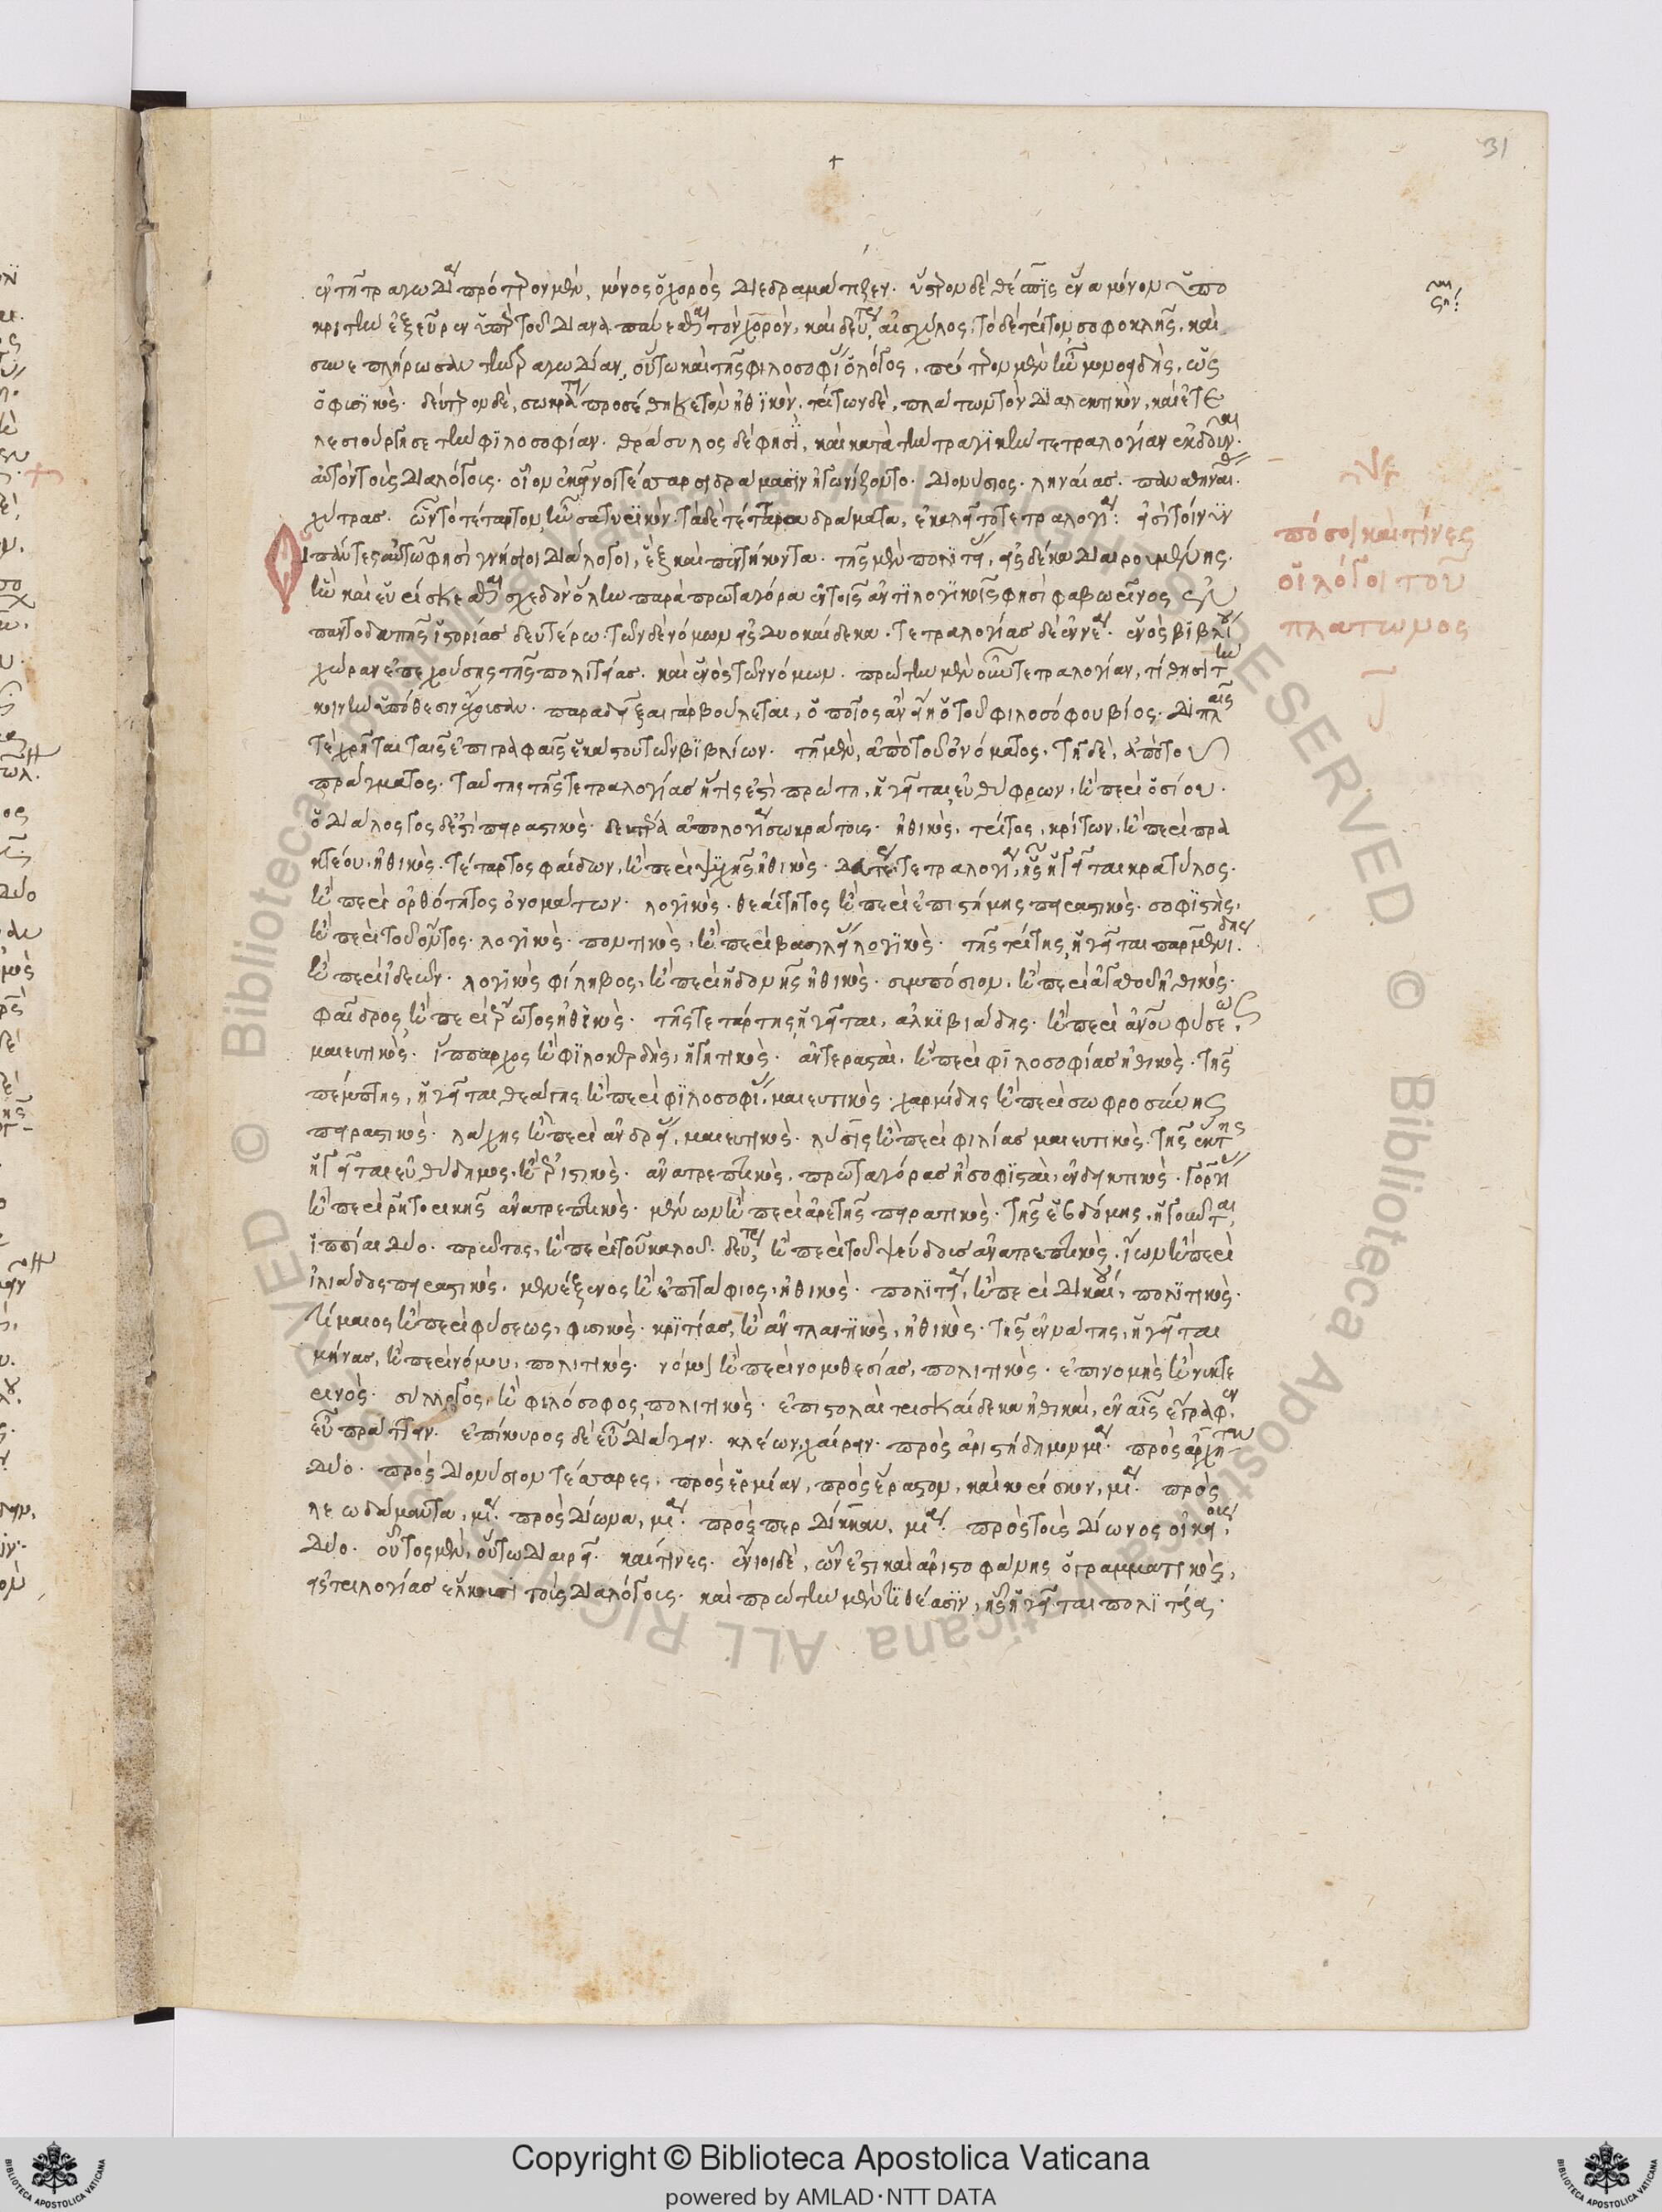 31
ἐν τῆ τραγωδία πρότερον μὲν, μόνος ὁ χορὸς διεδραμάτιζεν. ὕστερον δὲ θέσπις ἕνα μόνον ὑπο
κριτὴν ἐξεῦρεν ὑπὲρ τοῦ διαναπαύεσθαι τὸν χορόν, καὶ δεύτερον αἰσχύλος, τὸ δὲ τρίτον σοφοκλῆς, καὶ
συνεπλήρωσαν τὴν τραγωδίαν, οὕτω καὶ τῆς φιλοσοφίας ὁ λόγος, πρότερον μὲν ἦν μονοειδὴς, ὡς
ὁ φυσϊκὸς. δεύτερον δὲ, σωκράτης προσέθηκε τὸν ἠθϊκὸν. τρίτων δὲ, πλάτων τὸν διαλεκτικὸν, καὶ ἐτε
λεσιούργησε τὴν φιλοσοφίαν. θράσυλος δὲ φησὶ, καὶ κατὰ τὴν τραγϊκὴν τετραλογίαν ἐκδοῦναι
αὐτὸν τοὺς διαλόγους. οἷον ἐκεῖνοι τέτταρσι δράμασιν ἠγωνίζοντο. διονύσιος. ληναίας. παναθηναίοις
χύτρας. ὧν τὸ τέταρτον, ἦν σατυρϊκὸν. τὰ δὲ τέτταρα δράματα, ἐκαλεῖτο τετραλογία: εἰσὶ τοίνυν
οἱ πάντες αὐτῶ φησὶ γνήσιοι διάλογοι, ἓξ καὶ πεντήκοντα. τῆς μὲν πολιτείας, εἰς δέκα διαιρουμένης.
ἣν καὶ εὑρίσκεσθαι σχεδὸν ὅλην παρὰ πρωταγόρα ἐν τοῖς ἀντιλογϊκοῖς φησὶ φαβωρῖνος ἐν
παντοδαπῆς ἱστορίας δευτέρω. τῶν δὲ νόμων εἰς δυοκαίδεκα. τετραλογίας δὲ ἐννέα. ἑνὸς βιβλίου
χώραν ἐπεχούσης τῆς πολιτείας. καὶ ἑνὸς τῶν νόμων. πρώτην μὲν οὖν τετραλογίαν, τίθησι τὴν
κοινὴν ὑπόθεσιν ἔχουσαν. παραδεῖξαι γὰρ βούλεται, ὁποῖος ἂν εἴη ὁ τοῦ φιλοσόφου βίος. διπλαῖς
τὲ χρῆται ταῖς ἐπιγραφαῖς ἑκάστου τῶν βϊβλίων. τῆ μὲν, ἀπὸ τοῦ ὀνόματος. τῆ δὲ, ἀπὸ τοῦ
πράγματος. ταύτης τῆς τετραλογίας ἥτις ἐστὶ πρώτη, ἡγεῖται, εὐθύφρων, ἢ περὶ ὁσίου.
ὁ διάλογος δ' ἐστὶ πειραστικὸς. δευτέρα ἀπολογία σωκράτους. ἠθικὸς. τρίτος, κρίτων, ἢ περὶ πρα
κτέου. ἠθικὸς. τέταρτος φαίδων, ἢ περὶ ψυχῆς ἠθικὸς. δευτέρα τετραλογία, ἧς ἡγεῖται κρατύλος.
ἢ περὶ ὀρθότητος ὀνομάτων. λογϊκὸς. θεαίτητος ἢ περὶ ἐπιστήμης πειραστικὸς. σοφϊστὴς.
ἢ περὶ τοῦ ὄντος. λογϊκὸς. πολιτικὸς, ἢ περὶ βασιλείας λογϊκὸς. τῆς τρίτης, ἡγεῖται παρμενίδης.
ἢ περὶ ἰδεῶν. λογϊκὸς φίληβος. ἢ περὶ ἡδονῆς ἠθικὸς. συμπόσιον, ἢ περὶ ἀγαθοῦ ἠθικὸς.
φαῖδρος, ἢ περὶ ἔρωτος ἠθϊκὸς. τῆς τετάρτης ἡγεῖται, ἀλκϊβιάδης. ἢ περὶ ἀνου φύσεως
μαιευτικὸς. ἵππαρχος ἢ φιλοκερδὴς, ἠθικὸς. ἀντερασταὶ, ἢ περὶ φϊλοσοφίας ἠθικὸς. τῆς
πέμπτης, ἡγεῖται θεάγης ἢ περὶ φϊλοσοφίας, μαιευτικὸς. χαρμίδης ἢ περὶ σωφροσύνης
πειραστικὸς. λάχης ἢ περὶ ἀνδρείας, μαιευτικὸς. λύσις ἢ περὶ φιλίας μαιευτικὸς. τῆς ἕκτης
ἡγεῖται εὐθύδημος, ἢ ἐριστικὸς. ἀνατρεπτικὸς. πρωταγόρας ἢ σοφϊσταὶ, ἐνδεικτικὸς. γοργίας
ἢ περὶ ῥητορικῆς ἀνατρεπτικὸς. μένων ἢ περὶ ἀρετῆς πειραστικὸς. τῆς ἑβδόμης, ἡγοῦνται
ἱππίαι δύο. πρῶτος, ἢ περὶ τοῦ καλοῦ. δεύτερος, ἢ περὶ τοῦ ψεύδους ἀνατρεπτικὸς. ἴων ἢ περὶ
ἰλιάδος πειραστικὸς. μενέξενος ἢ ἐπιτάφιος, ἠθικὸς. πολϊτεία, ἢ περὶ δικαίου, πολϊτικὸς.
τίμαιος ἢ περὶ φύσεως, φυσικὸς. κριτίας, ἢ ἀντλαντϊκὸς, ἠθικὸς. τῆς ἐννάτης, ἡγεῖται
μήνας, ἢ περὶ νόμου, πολιτικὸς. νόμοι ἢ περὶ νομοθεσίας, πολιτικὸς. ἐπινομὴς ἢ νυκτε
ρινὸς. σύλλογος, ἢ φιλόσοφος, πολιτικὸς. ἐπιστολαὶ τρισκαίδεκα ἠθικαὶ, ἐν αἷς ἔγραφεν
εὖ πράττειν. ἐπίκουρος δὲ εὖ διάγειν. κλέων, χαίρειν. πρὸς ἀριστήδημον μία. πρὸς ἀρχήταν
δύο. πρὸς διονύσιον τέτταρες. πρὸς ἑρμίαν, πρὸς ἔραστον, καὶ κορίσκον, μία. πρὸς
λεωδάμαντα, μία. πρὸς δίωνα, μία. πρὸς περδίκκαν, μία. πρὸς τοὺς δίωνος οἰκείους,
δύο. οὗτος μὲν, οὕτω διαιρεῖ. καὶ τινες. ἔνιοι δὲ, ὧν ἐστι καὶ ἀριστοφάνης ὁ γραμματικὸς,
εἰς τριλογίας ἕλκουσι τοὺς διαλόγους. καὶ πρώτην μὲν τϊθέασϊν, ἧς ἡγεῖται πολϊτείας.
πόσοι καὶ τίνες
οἱ λόγοι τοῦ
πλάτωνος
Copyright © Biblioteca Apostolica Vaticana
powered by AMLAD·NTT DATA
© Biblioteca Apostolica Vaticana ALL RIGHTS RESERVED